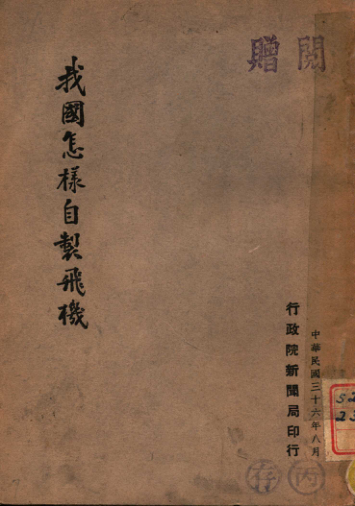 贈閱
我國怎樣自製飛機
中華民國三十六年八月
行政院新聞局印行
丙存